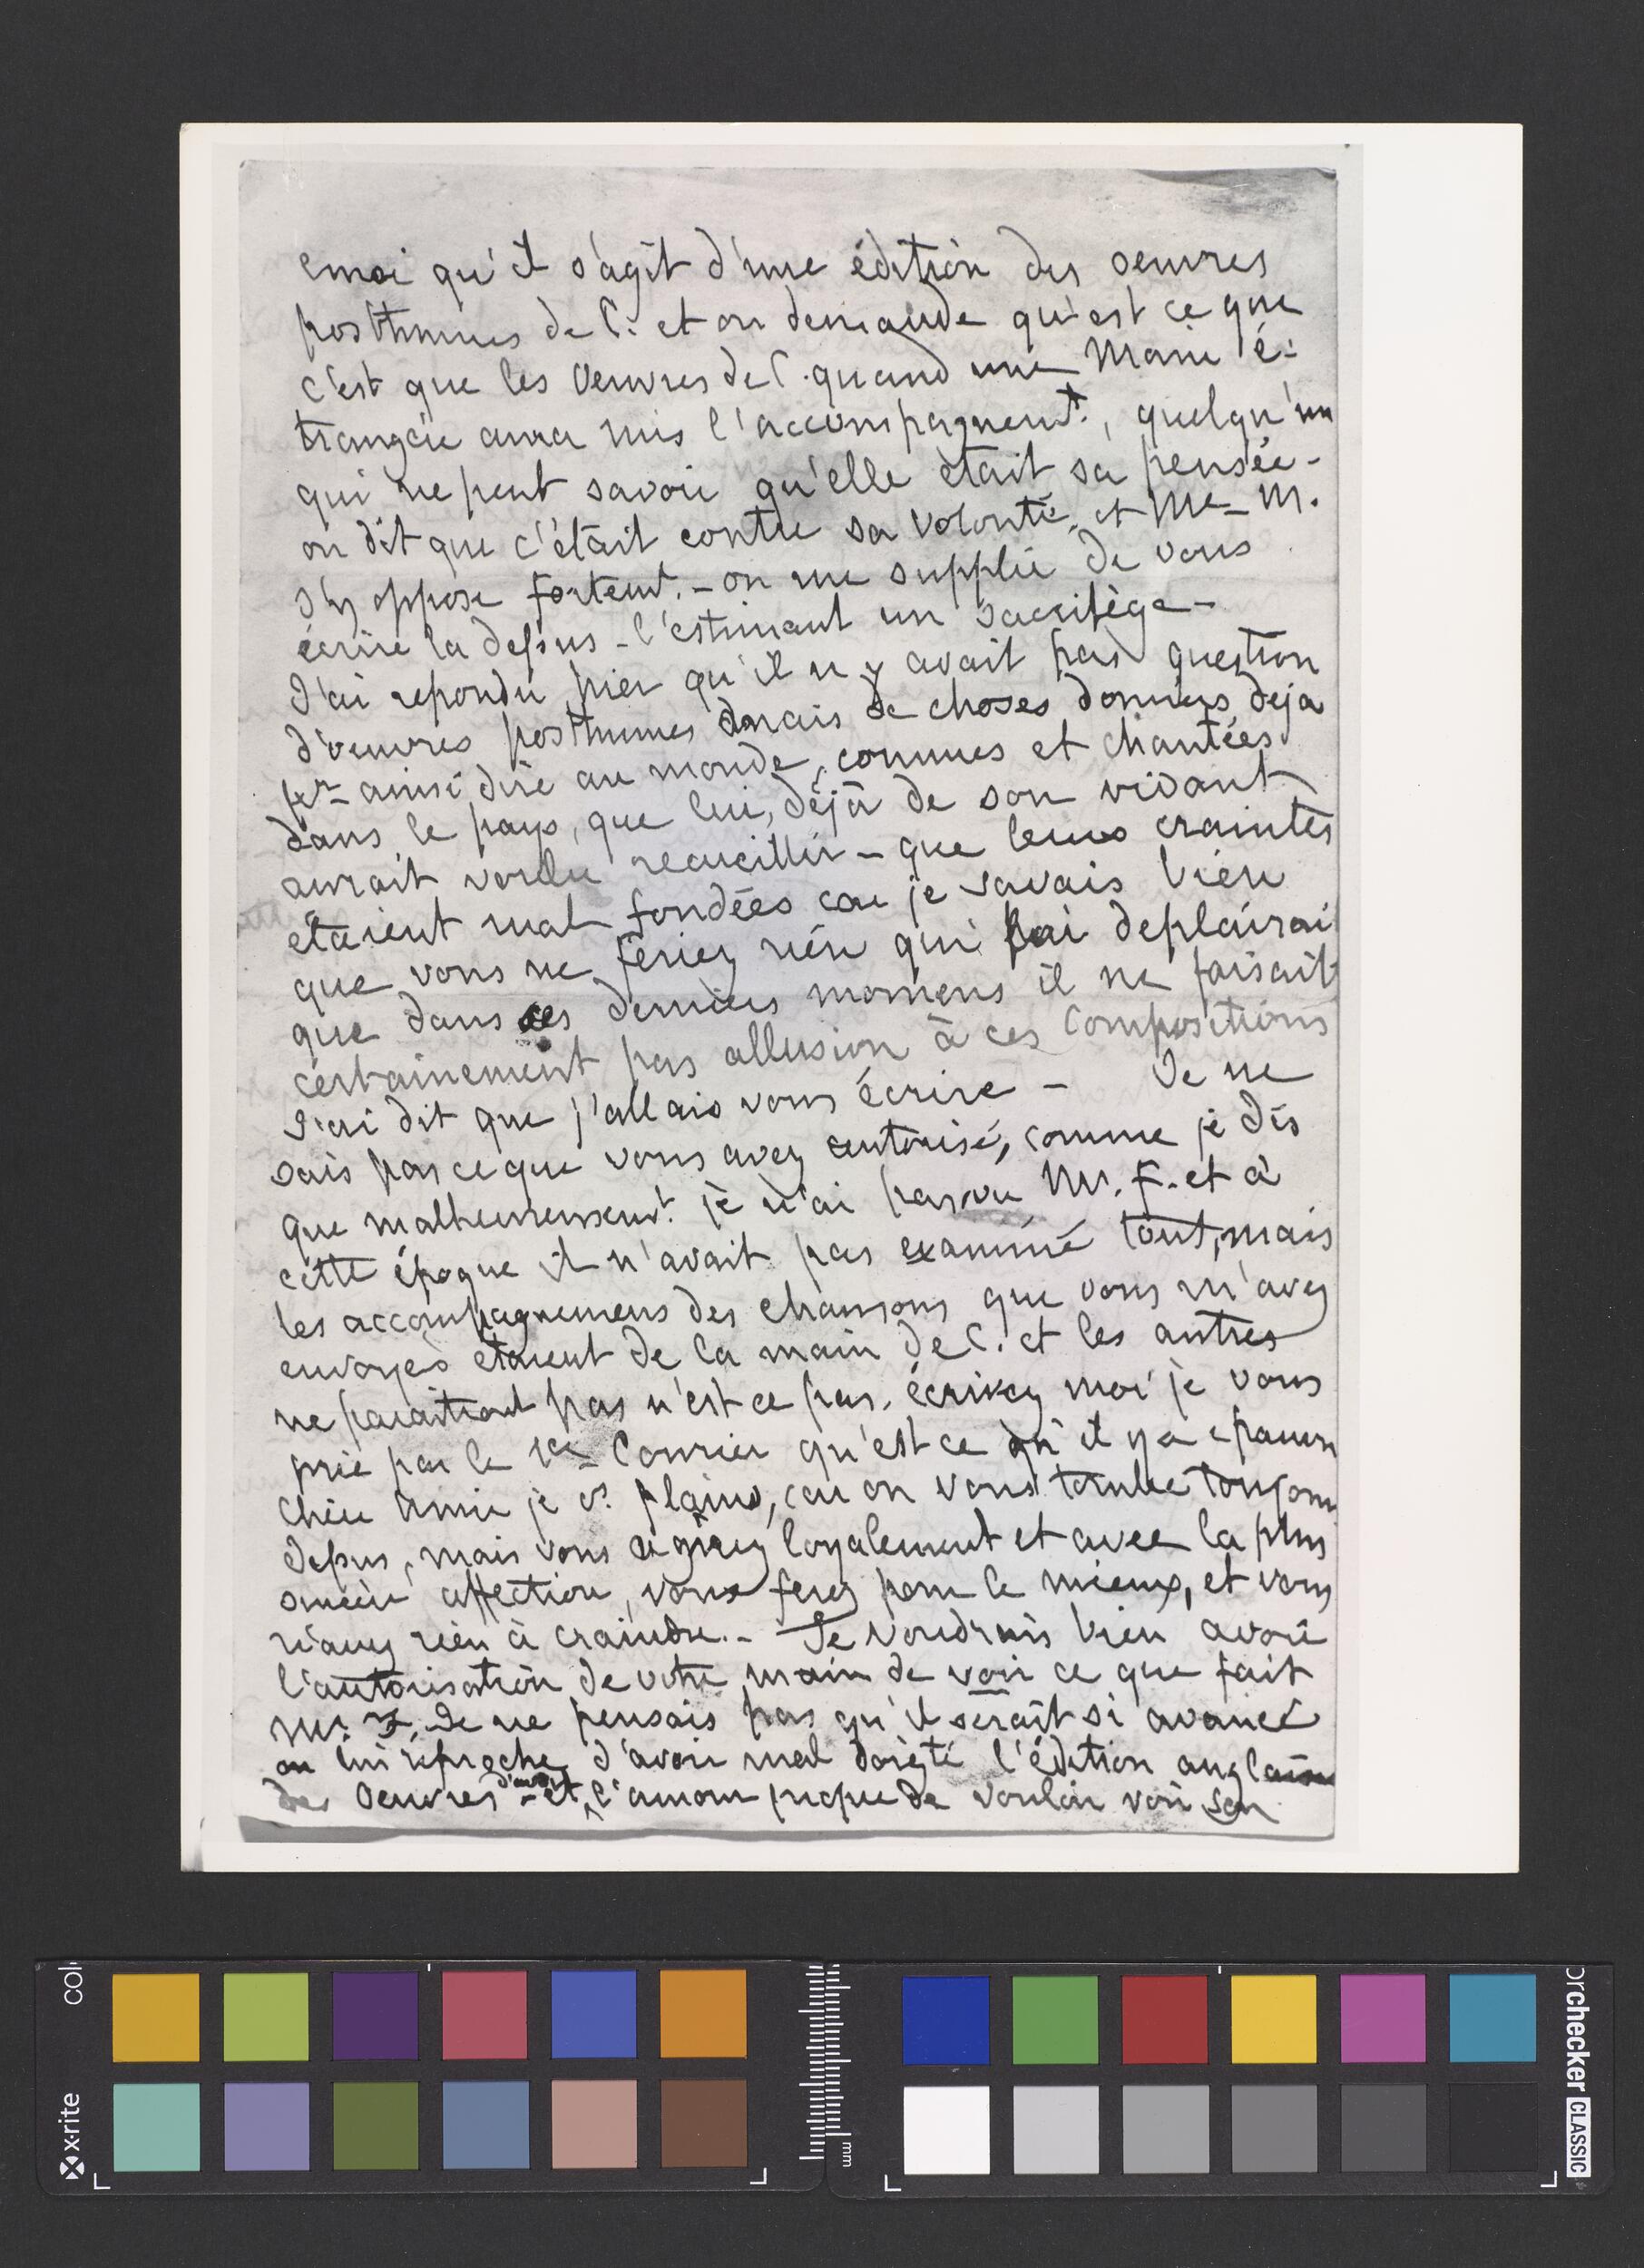 emoi qu'il s'agit d'une édition des oeuvres
posthumes de C. et on demande qu'est ce que
c'est que les Oeuvres de C. quand une Main é-
trangère aura mis l'accompagnemt., quelqu'un
qui ne peut savoir qu'elle était sa pensée -
on dit que c'était contre sa volonté, et Me_ M.
s'y oppose fortemt. - on me supplie de vous
écrire la dessus - l'estimant un sacrilège -
J'ai repondu hier qu'il n'y avait pas question
d'oeuvres posthumes mais de choses données deja
pr_ ainsi dire au monde, connues et chantées
dans le pays, que lui, déjà de son vivant
aurait voulu recueillir - que leurs craintes
étaient mal fondées car je savais bien
que vous ne feriez rien qui lui deplairai
que dans ses derniers momens il ne faisait
certainement pas allusion à ces compositions
J'ai dit que j'allais vous écrire - Je ne
sais pas ce que vous avez autorisé, comme je dis
que malheureusemt. je n'ai pas vu Mr. F. et à
cette époque il n'avait pas examiné tout, mais
les accompagnemens des chansons que vous m'avez
envoyés étaient de la main de C. et les autres
ne paraitront pas n'est ce pas. écrivez moi je vous
prie par le 1er_ Courier qu'est ce qu'il y a - pauvre
chère Amie je vs. plains, car on vous tombe toujours
dessus, mais vous agirez loyalement et avec la plus
sincère affection, vous ferez pour le mieux, et vous
n'avez rien à craindre. - Je voudrais bien avoir
l'autorisation de votre main de voir ce que fait
Mr. F. Je ne pensais pas qu'il serait si avancé
on lui réproche d'avoir mal doigté l'édition anglaise
des Oeuvres - et d'avoir l'amour propre de vouloir voir son
x-rite
col
mm
orchecker CLASSIC